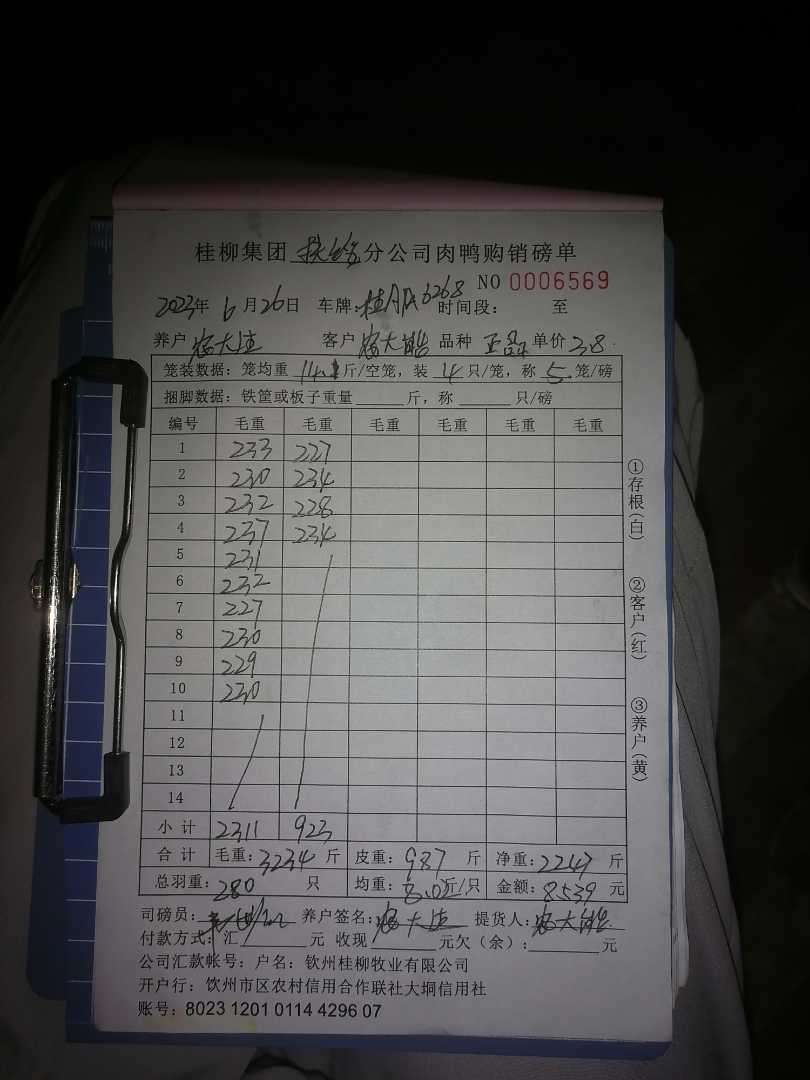 桂柳集团 扶绥 分公司肉鸭购销磅单
NO 0006569
2023年 6月26日 车牌: 时间段: 至
养户 客户 品种 正品 单价 3.8
笼装数据：笼均重 14.1 斤/空笼，装 4 只/笼，称 5 笼/磅
捆脚数据：铁筐或板子重量 斤，称 只/磅
编号 毛重 毛重 毛重 毛重 毛重 毛重
1 233 227
2 230 234
3 232 228
4 237 234
5 231
6 232
7 227
8 230
9 229
10 230
11
12
13
14
小计 2311 923
合计 毛重：3234 斤 皮重：987 斤 净重：2247 斤
总羽重：280 只 均重：8.0 斤/只 金额：8539 元
司磅员： 养户签名： 提货人：
付款方式：汇 元 收现 元欠（余）： 元
公司汇款帐号：户名：钦州桂柳牧业有限公司
开户行：钦州市区农村信用合作联社大垌信用社
账号：8023 1201 0114 4296 07
①存根（白）
②客户（红）
③养户（黄）